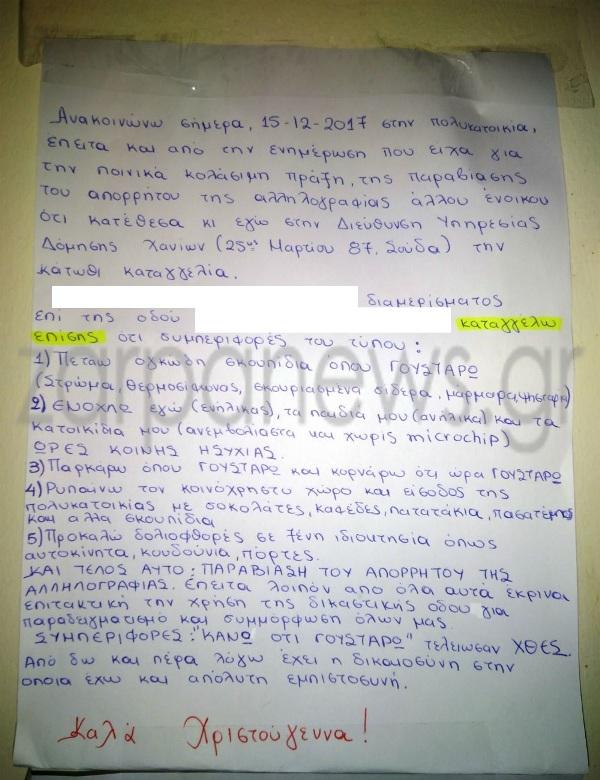 Ανακοινώνω σήμερα, 15-12-2017 στην πολυκατοικία,
έπειτα και από την ενημέρωση που είχα για
την ποινικά κολάσιμη πράξη, της παραβίασης
του απορρήτου της αλληλογραφίας άλλου ένοικου
ότι κατέθεσα κι εγώ στην Διεύθυνση Υπηρεσίας
Δόμησης Χανίων (25ης Μαρτίου 87, Σούδα) την
κάτωθι καταγγελία.
διαμερίσματος
επί της οδού καταγγέλω
επίσης ότι συμπεριφορές του τύπου:
1) Πετάω ογκώδη σκουπίδια όπου ΓΟΥΣΤΑΡΩ
(Στρώμα, θερμοσίφωνας, σκουριασμένα σίδερα, μάρμαρα, ψησταριά)
2) ΕΝΟΧΛΩ εγώ (ενήλικας), τα παιδιά μου (ανήλικα) και τα
κατοικίδια μου (ανεμβολίαστα και χωρίς microchip)
ΩΡΕΣ ΚΟΙΝΗΣ ΗΣΥΧΙΑΣ.
3) Παρκάρω όπου ΓΟΥΣΤΑΡΩ και κορνάρω ότι ώρα ΓΟΥΣΤΑΡΩ
4) Ρυπαίνω τον κοινόχρηστο χώρο και είσοδος της
πολυκατοικίας με σοκολάτες, καφέδες, πατατάκια, πασατέμπος
και άλλα σκουπίδια
5) Προκαλώ δολιοφθορές σε ξένη ιδιοκτησία όπως
αυτοκίνητα, κουδούνια, πόρτες.
ΚΑΙ ΤΕΛΟΣ ΑΥΤΟ: ΠΑΡΑΒΙΑΣΗ ΤΟΥ ΑΠΟΡΡΗΤΟΥ ΤΗΣ
ΑΛΛΗΛΟΓΡΑΦΙΑΣ. Έπειτα λοιπόν από όλα αυτά έκρινα
επιτακτική την χρήση της δικαστικής οδού για
παραδειγματισμό και συμμόρφωση όλων μας
ΣΥΜΠΕΡΙΦΟΡΕΣ: "ΚΑΝΩ ΟΤΙ ΓΟΥΣΤΑΡΩ" τελείωσαν ΧΘΕΣ.
Από δω και πέρα λόγω έχει η δικαιοσύνη στην
οποία έχω και απόλυτη εμπιστοσύνη.
Καλά Χριστούγεννα!
zarpanews.gr